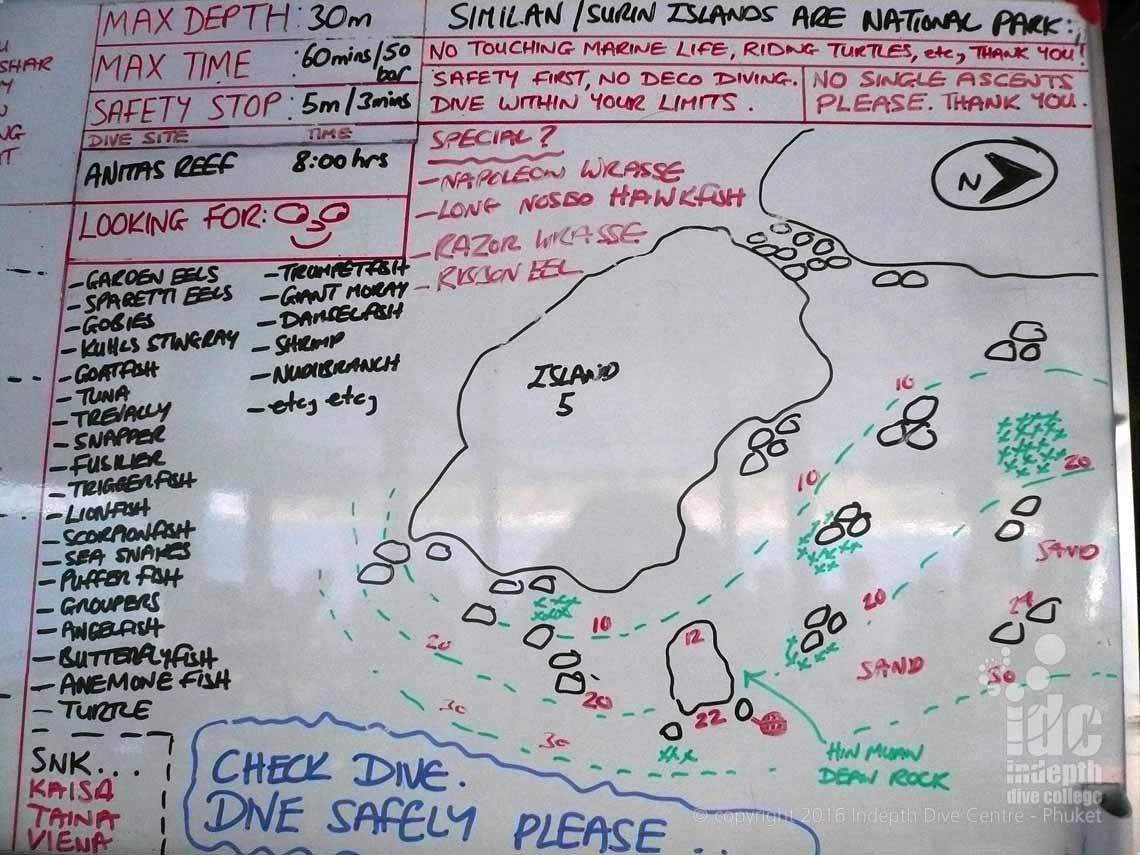 MAX DEPTH: 30m
MAX TIME : 60mins/50 bar
SAFETY STOP: 5m/3mins
DIVE SITE TIME
ANITAS REEF 8:00hrs
LOOKING FOR:
-GARDEN EELS
-SPAGETTI EELS
-GOBIES
-KUHLS STINGRAY
-GOATFISH
-TUNA
-TREVALLY
-SNAPPER
-FUSILIER
-TRIGGERFISH
-LIONFISH
-SCORPIONFISH
-SEA SNAKES
-PUFFER FISH
-GROUPERS
-ANGELFISH
-BUTTERFLYFISH
-ANEMONE FISH
-TURTLE
-TRUMPETFISH
-GIANT MORAY
-DAMSELFISH
-SHRIMP
-NUDIBRANCH
-etc, etc,
SNK...
KAISA
TAINA
VIENA
SIMILAN/SURIN ISLANDS ARE NATIONAL PARK:,
NO TOUCHING MARINE LIFE, RIDING TURTLES, etc, THANK YOU!
SAFETY FIRST, NO DECO DIVING.
DIVE WITHIN YOUR LIMITS.
NO SINGLE ASCENTS
PLEASE. THANK YOU.
SPECIAL?
-NAPOLEON WRASSE
-LONG NOSED HAWKFISH
-RAZOR WRASSE
-RIBBON EEL
N
ISLAND
5
10
20
10
SAND
20
24
10
12
SAND
30
20
20
30
22
30
HIN MUAN
DEAN ROCK
CHECK DIVE.
DIVE SAFELY PLEASE..
idc
indepth
dive college
© copyright 2016 Indepth Dive Centre - Phuket